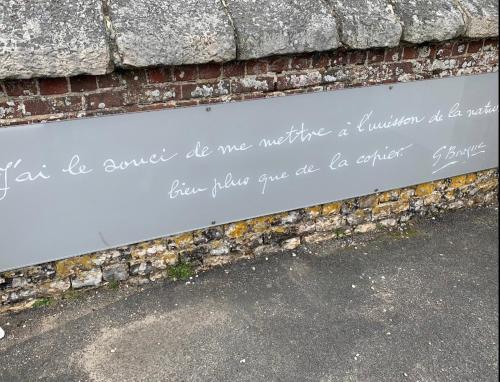 J'ai le souci de me mettre à l'unisson de la natu
bien plus que de la copier.
G Braque